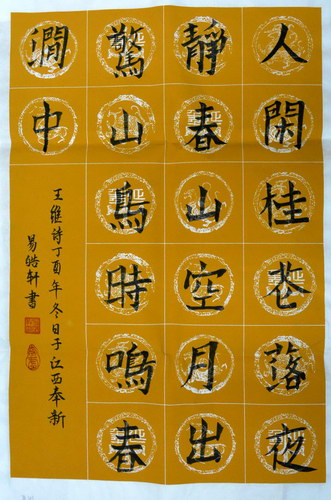 人閑桂花落夜
靜春山空月出
驚山鳥時鳴春
澗中
王維詩丁酉年冬日于江西奉新
易皓轩書